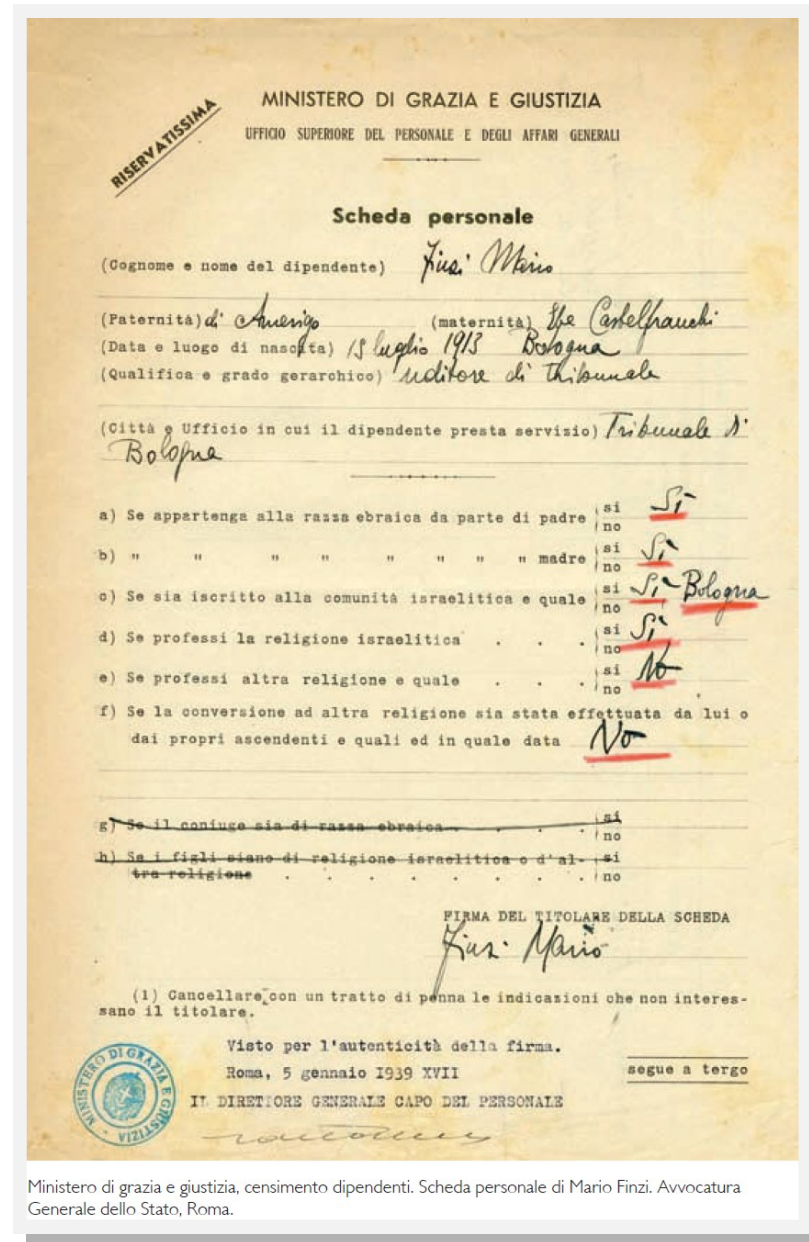 RISERVATISSIMA
MINISTERO DI GRAZIA E GIUSTIZIA
UFFICIO SUPERIORE DEL PERSONALE E DEGLI AFFARI GENERALI
Scheda personale
(Cognome e nome del dipendente) Finzi Mario
(Paternità) di Amerigo (maternità) Ebe Castelfranchi
(Data e luogo di nascita) 15 luglio 1913 Bologna
(Qualifica e grado gerarchico) uditore di Tribunale
(Città e Ufficio in cui il dipendente presta servizio) Tribunale di
Bologna
a) Se appartenga alla razza ebraica da parte di padre si no Sì
b) " " " " " " " " madre si no Sì
c) Se sia iscritto alla comunità israelitica e quale si no Sì Bologna
d) Se professi la religione israelitica . . . si no Sì
e) Se professi altra religione e quale . . . si no No
f) Se la conversione ad altra religione sia stata effettuata da lui o
dai propri ascendenti e quali ed in quale data No
g) Se il coniuge sia di razza ebraica . . . si no
h) Se i figli siano di religione israelitica o d'al- si
tra religione . . . . . . . no
FIRMA DEL TITOLARE DELLA SCHEDA
Finzi Mario
(1) Cancellare con un tratto di penna le indicazioni che non interes-
sano il titolare.
Visto per l'autenticità della firma.
Roma, 5 gennaio 1939 XVII
segue a tergo
IL DIRETTORE GENERALE CAPO DEL PERSONALE
MINISTERO DI GRAZIA E GIUSTIZIA
Ministero di grazia e giustizia, censimento dipendenti. Scheda personale di Mario Finzi. Avvocatura
Generale dello Stato, Roma.